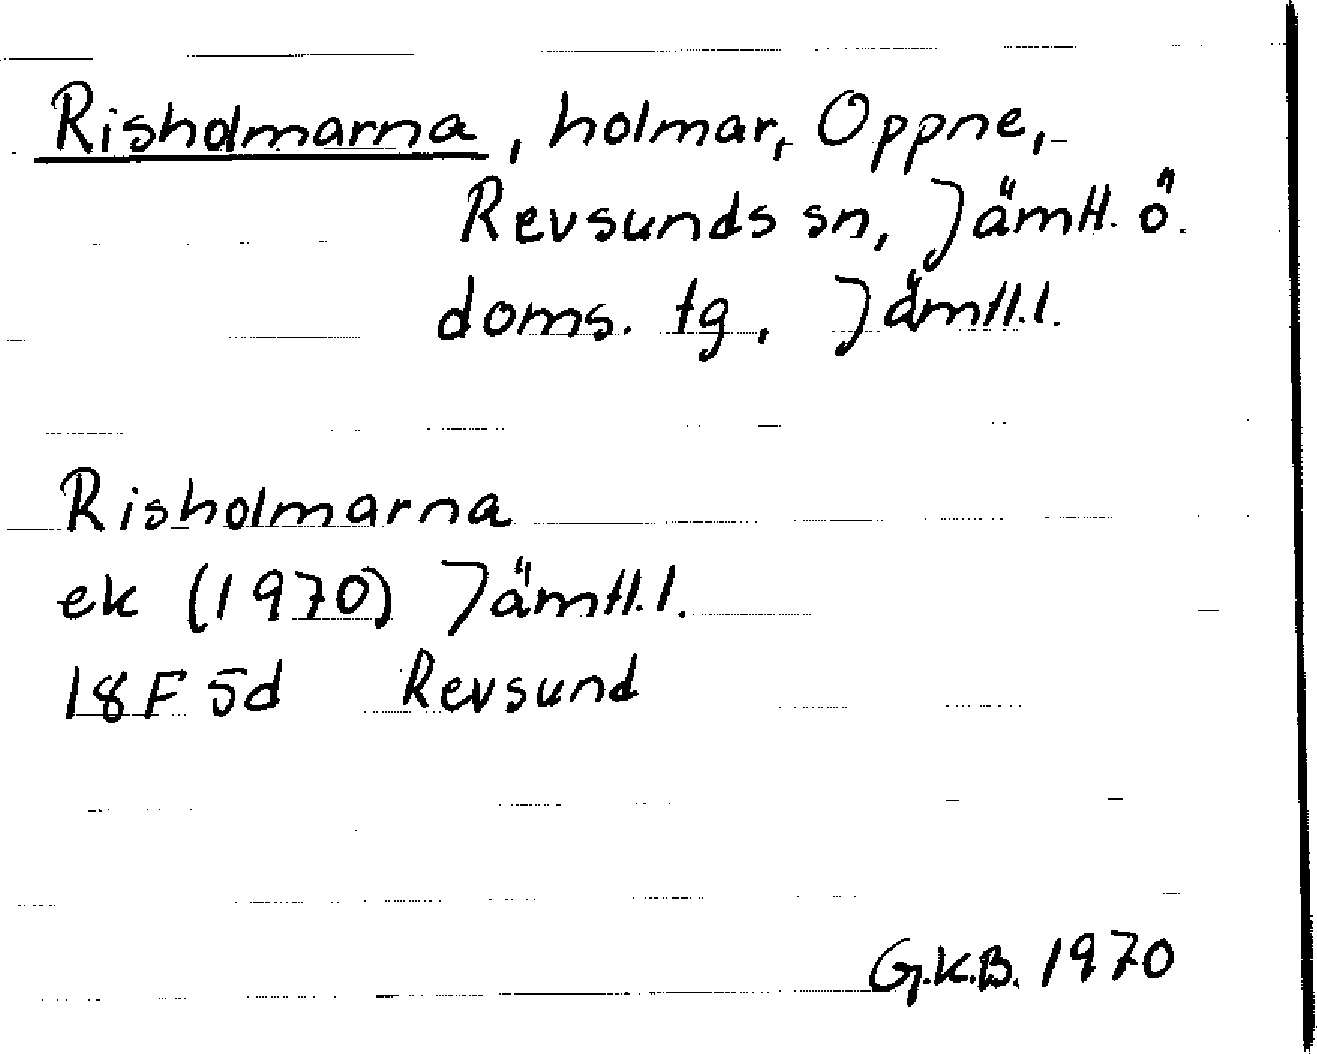 Risholmarna, holmar, Oppne,
Revsunds sn, Jämtl. ö.
doms. tg, Jämtl. l.
Risholmarna
ek (1970) Jämtl. l.
18F 5d Revsund
G.K.B. 1970